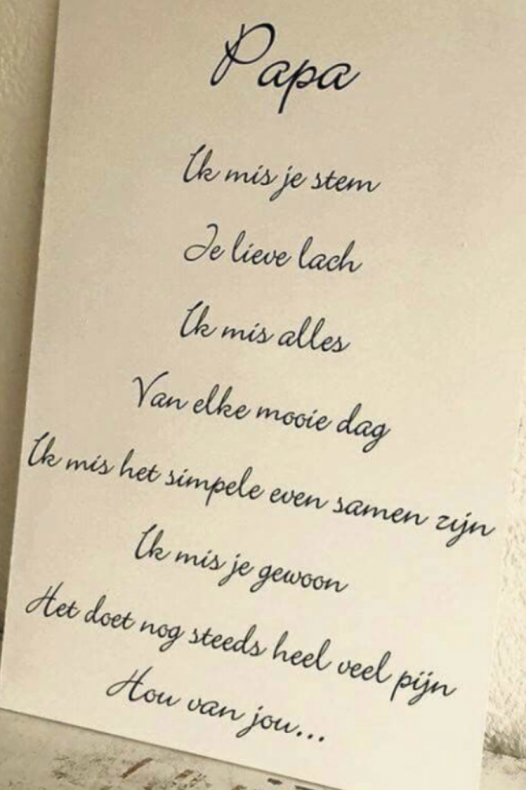 Papa
Ik mis je stem
Je lieve lach
Ik mis alles
Van elke mooie dag
Ik mis het simpele even samen zijn
Ik mis je gewoon
Het doet nog steeds heel veel pijn
Hou van jou...